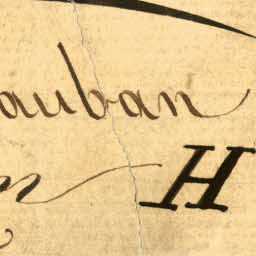 auban
H